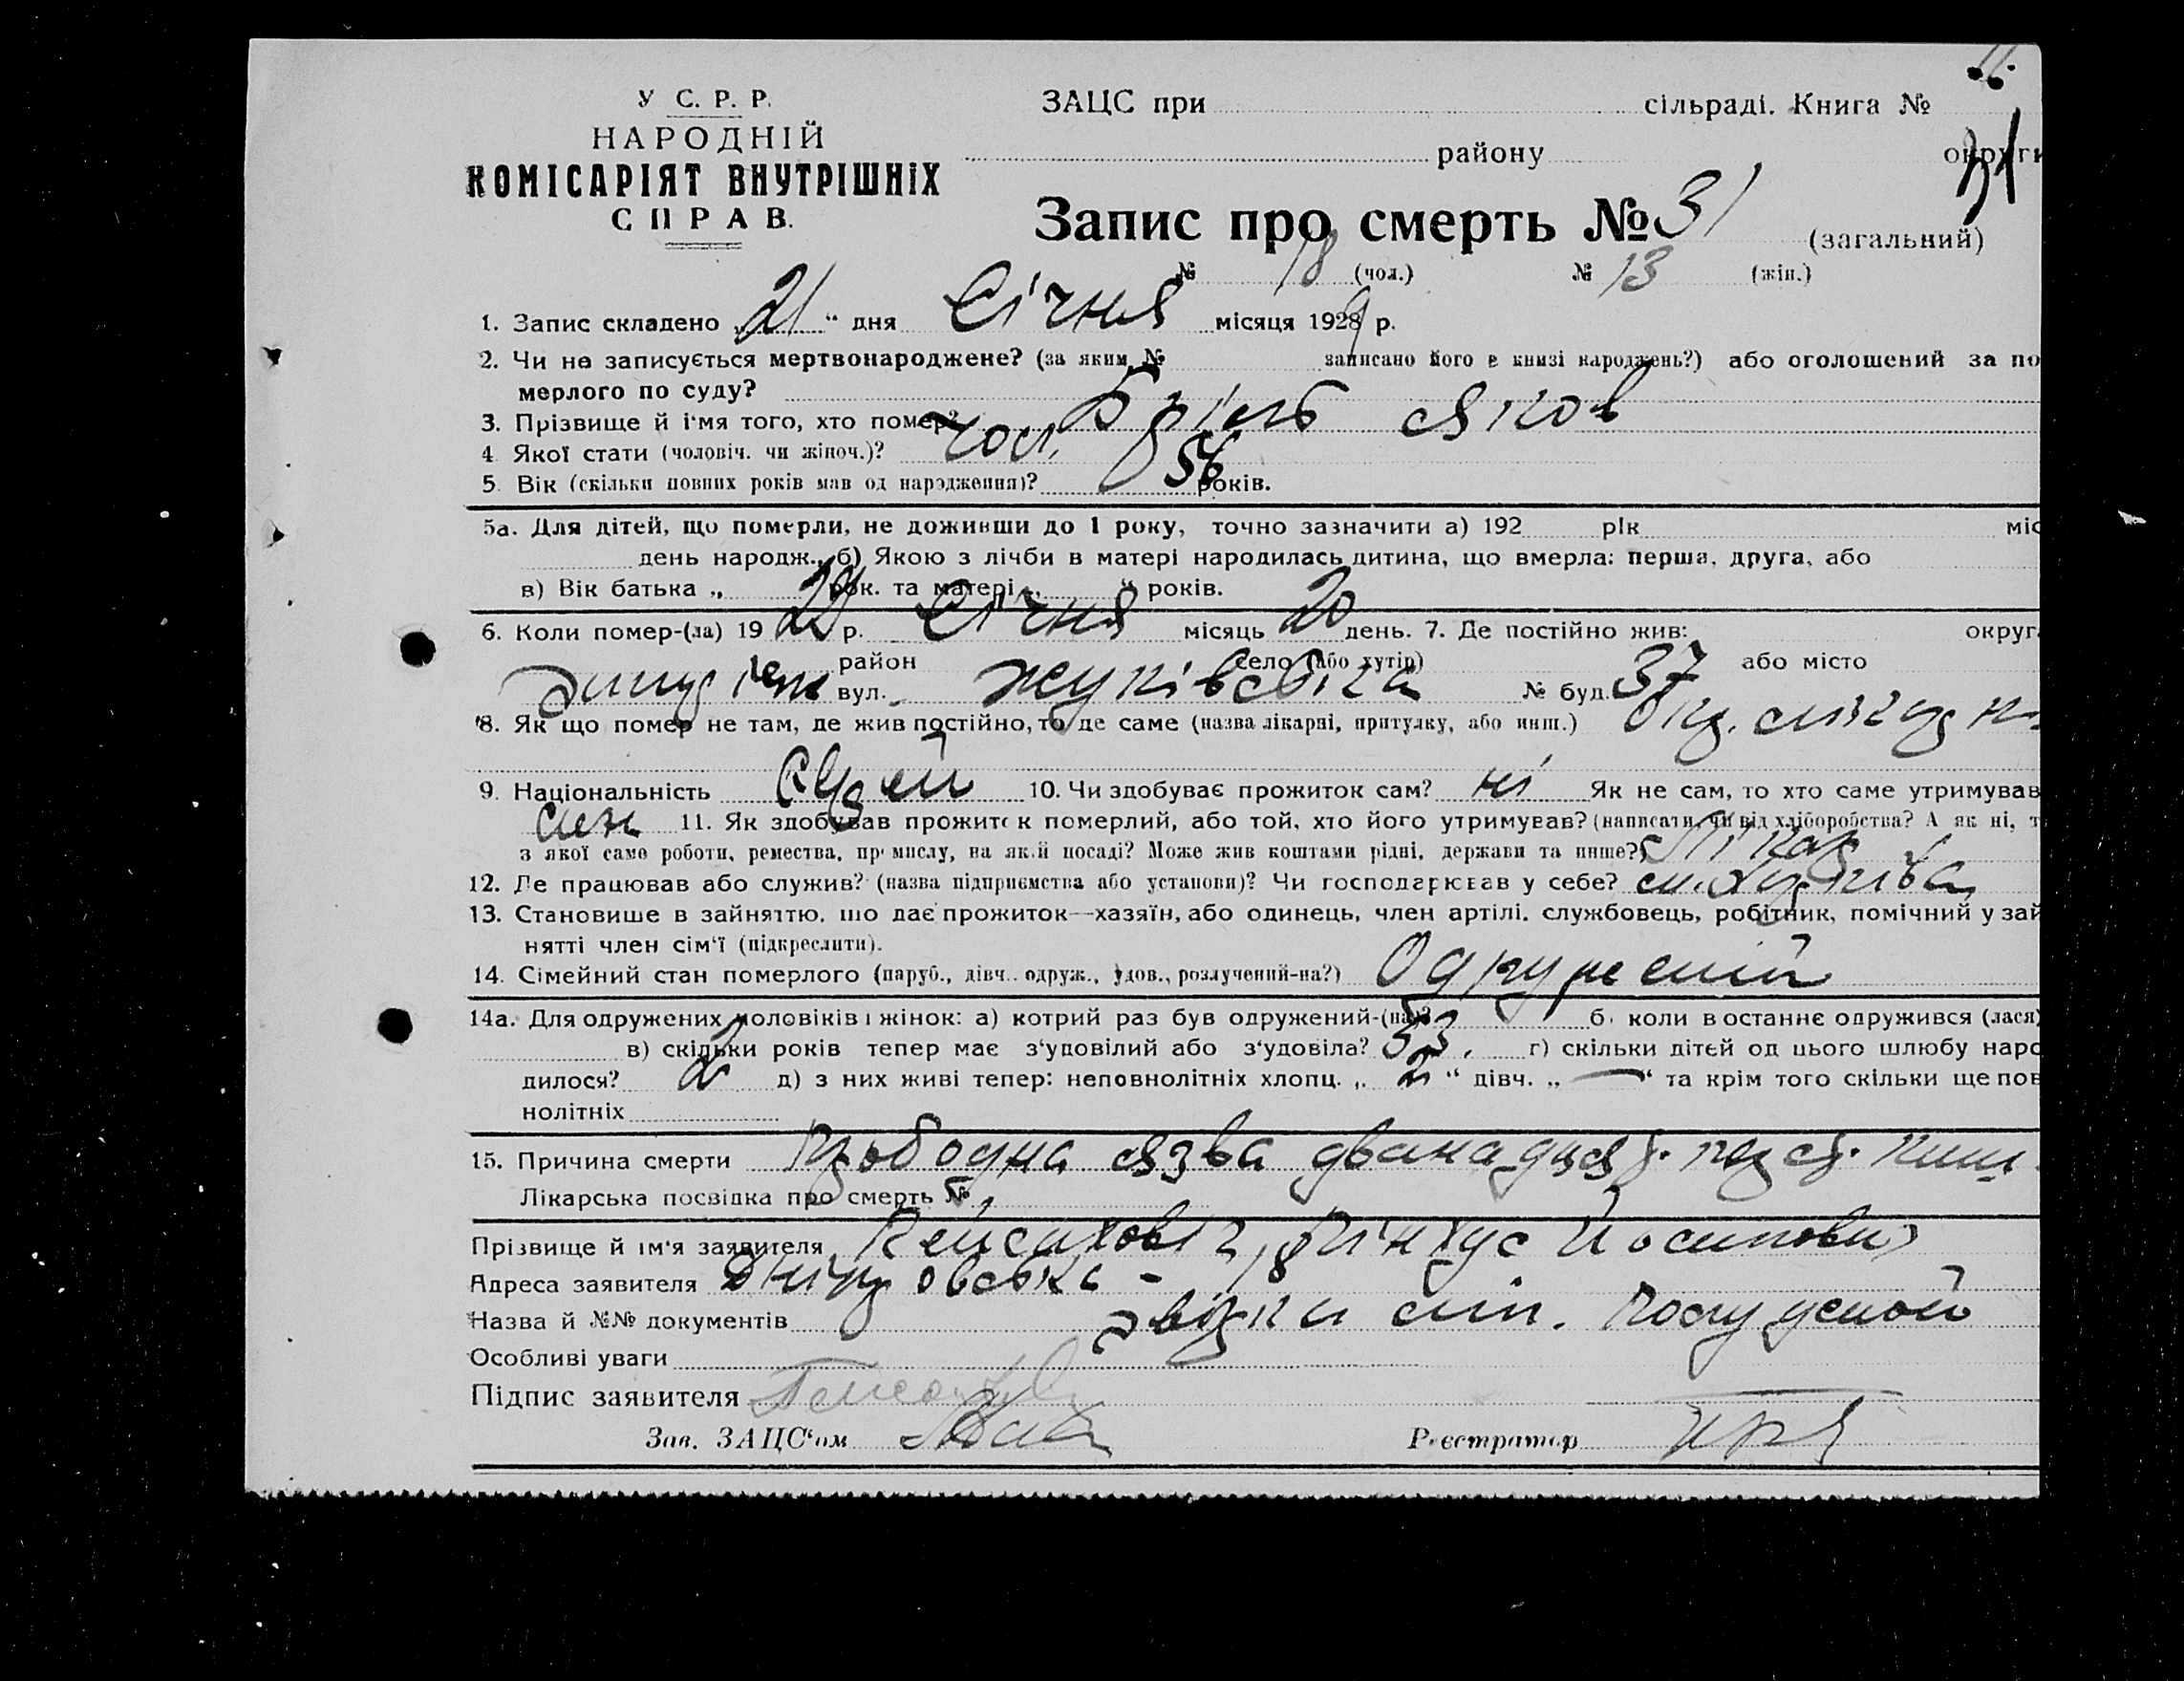 У С. Р. Р.
НАРОДНІЙ
КОМІСАРІЯТ ВНУТРІШНІХ
СПРАВ.
ЗАЦС при сільраді. Книга №
району округи
31
Запис про смерть № 31 (загальний)
№ 18 (чол.) № 13 (жін.)
1. Запис складено „21“ дня Січня місяця 1929 р.
2. Чи не записується мертвонароджене? (за яким № записано його в книзі народжень?) або оголошений за по
мерлого по суду?
3. Прізвище й ім'я того, хто помер? Бріль Яков
4. Якої стати (чоловіч. чи жіноч.)? чол.
5. Вік (скільки повних років мав од народження)? 56 років.
5а. Для дітей, що померли, не доживши до 1 року, точно зазначити а) 192 рік міс
день народж., б) Якою з лічби в матері народилась дитина, що вмерла: перша, друга, або
в) Вік батька „ рок. та матері „ “ років.
6. Коли помер-(ла) 19 29 р. Січня місяць 20 день. 7. Де постійно жив: округа
район село (або хутір) або місто
вул. Жуківська № буд. 37
8. Як що помер не там, де жив постійно, то де саме (назва лікарні, притулку, або инш.)
9. Національність Юдей 10. Чи здобуває прожиток сам? ні Як не сам, то хто саме утримував
син 11. Як здобував прожиток померлий, або той, хто його утримував? (написати, чи від хліборобства? А як ні, т
з якої саме роботи, ремества, промислу, на якій посаді? Може жив коштами рідні, держави та инше?) Лікар
12. Де працював або служив? (назва підприємства або установи)? Чи господарював у себе?
13. Становише в зайняттю, що дає прожиток—хазяїн, або одинець, член артілі, службовець, робітник, помічний у зай
нятті член сім'ї (підкреслити).
14. Сімейний стан померлого (паруб., дівч., одруж., удов., розлучений-на?) Одружений
14а. Для одружених чоловіків і жінок: а) котрий раз був одружений-(на)? б) коли востаннє одружився (лася)
в) скільки років тепер має з'удовілий або з'удовіла? 53. г) скільки дітей од цього шлюбу наро
дилося? 2 д) з них живі тепер: неповнолітніх хлопц. „ 2 “ дівч. „ — “ та крім того скільки ще пов
нолітніх
15. Причина смерти язва
Лікарська посвідка про смерть № 5
Прізвище й ім'я заявителя Пейсахович Пінхус Йосипович
Адреса заявителя Дніпровська - 18
Назва й №№ документів
Особливі уваги
Підпис заявителя
Зав. ЗАЦС'ом Реєстратор